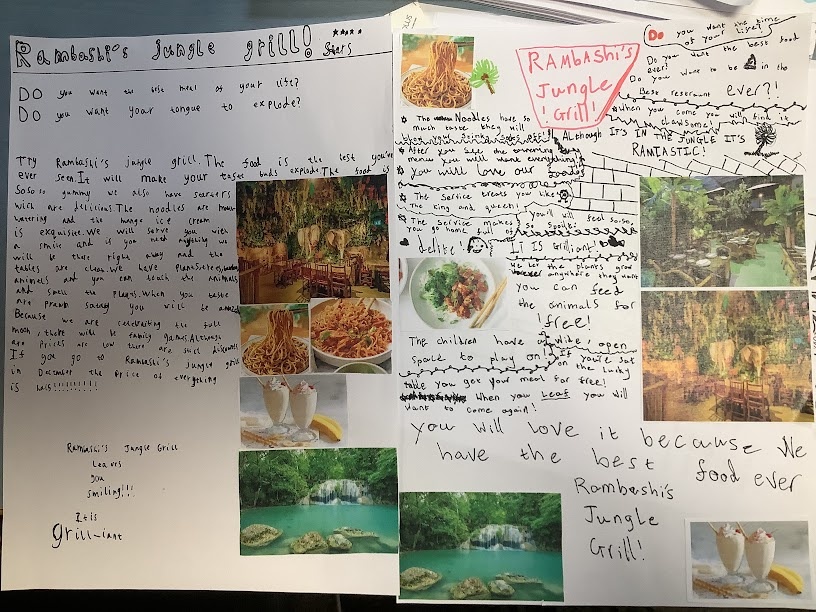 Rambashi's Jungle grill! ****
Stars
Do you want the best meal of your life?
Do you want your tongue to explode?
Try Rambashi's jungle grill. The food is the best you've
ever seen. It will make your taste buds explode. The food is
So so so yummy we also have starters
wich are delicious. The noodles are mouth
watering and the mango ice cream
is exquisite. We will serve you with
a smile and is you need anything we
will be there right away and the
tables are clean. We have
animals and you can touch the animals
and smell the plants. When you taste
are prawn you will be amazed
Because we are celebrating the full
moon, there will be family games. Although
are prices are low there are such discounts
If you go to Rambashi's Jungle grill
in December the price of everything
is half!!!!!!!!!!
Rambashi's Jungle Grill
Leaves
you
smiling!!!
It is
grill-iant
RAMBASHI'S
JUNGLE
! Grill!
Do you want the time
of your life?
Do you want the best food
ever!
Do you want to be in the
Best reseraunt ever?!
When you come you will find it
clawsome!
Although IT'S IN THE JUNGLE IT'S
RAMTASTIC!
The Noodles have so
much taste they will
After you see the
menu you will want everything!
you will love our foods
The Service treats you like
the King and queen!
The Service makes you'll feel so so
you go home full of So Spoilt!
delite!
IT IS Grilliant!
We let the plants grow
anywhere they want
you can feed
the animals for
!free!
The children have a wide, open
space to play on! If you're sat
on the lucky
table you get your meal for free!
When you Leaf you will
want to come again!
you will love it because We
have the best food ever
Rambashi's
Jungle
Grill!